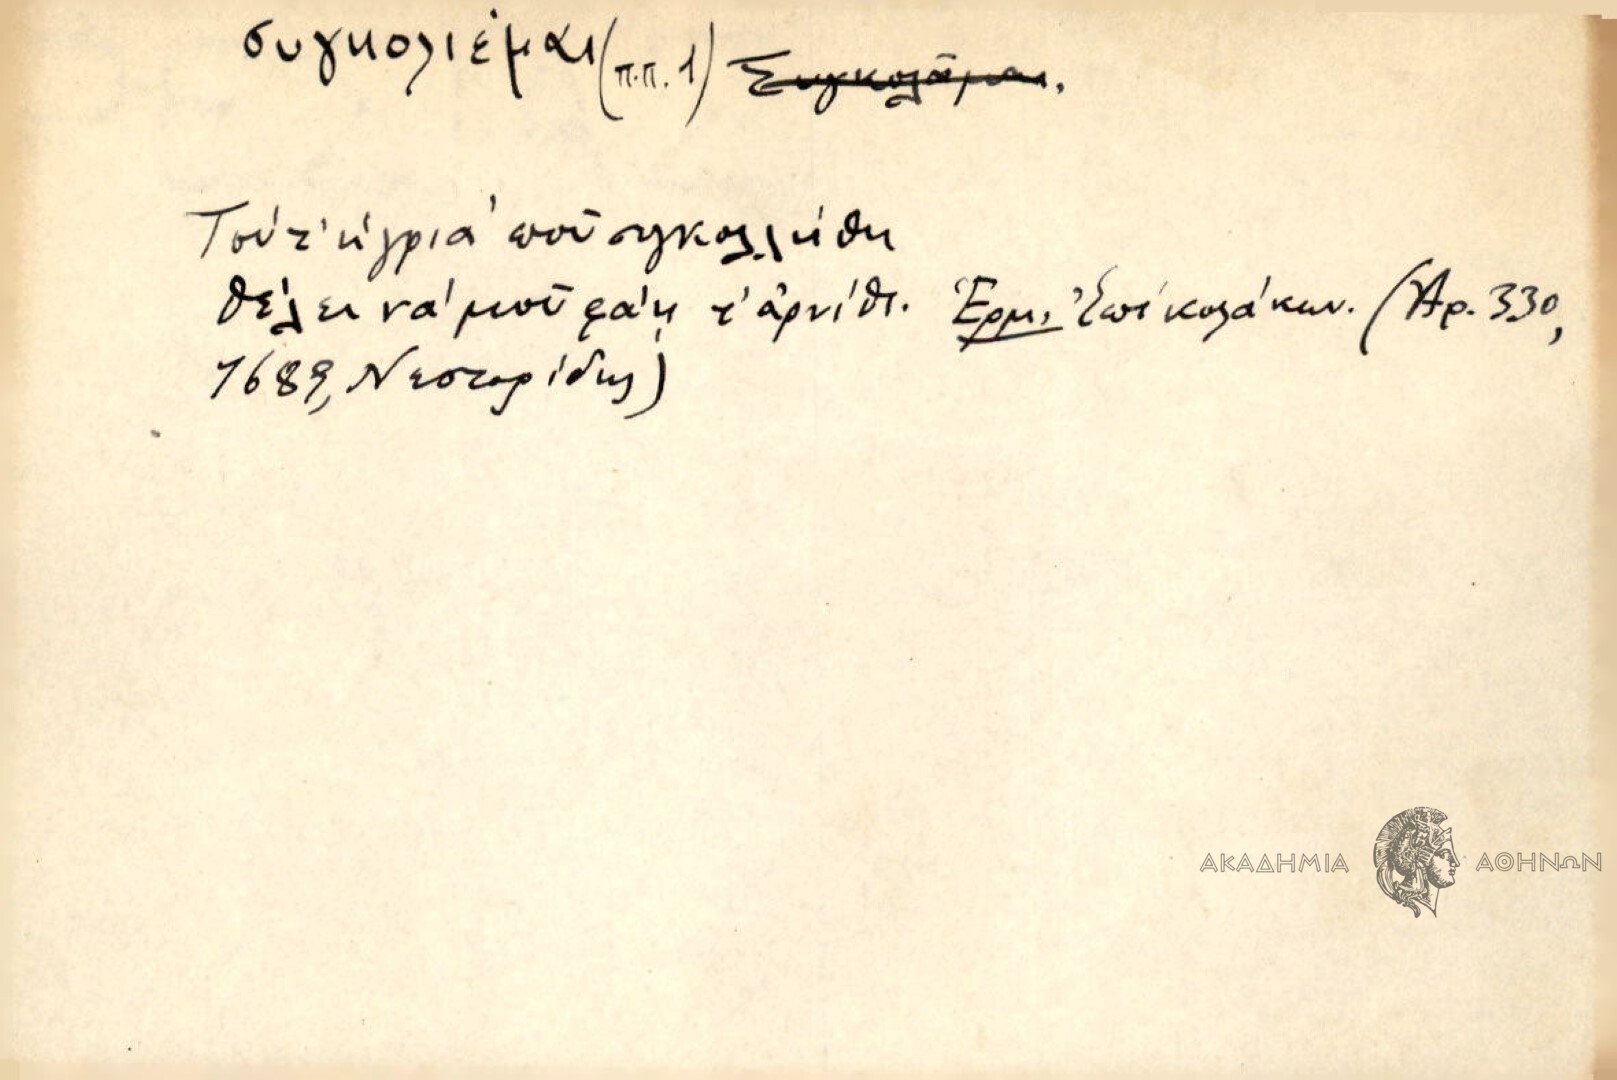 συγκολιέμαι (π.π. 1) Συγκολᾶμαι.
Τού τ' ἡ γριά ποῦ συγκολλήθη
θέλει νά μοῦ φάῃ τ' ἀρνίθι. Ἑρμ. Ἐπί κολάκων. (Ἀρ. 330,
1689, Νεστορίδης)
ΑΚΑΔΗΜΙΑ ΑΘΗΝΩΝ